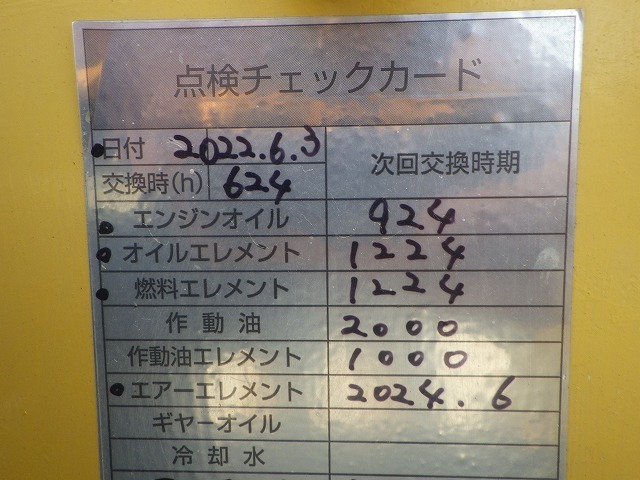 点検チェックカード
日付 2022.6.3 次回交換時期
交換時(h) 624
エンジンオイル 924
オイルエレメント 1224
燃料エレメント 1224
作動油 2000
作動油エレメント 1000
エアーエレメント 2024.6
ギヤーオイル
冷却水